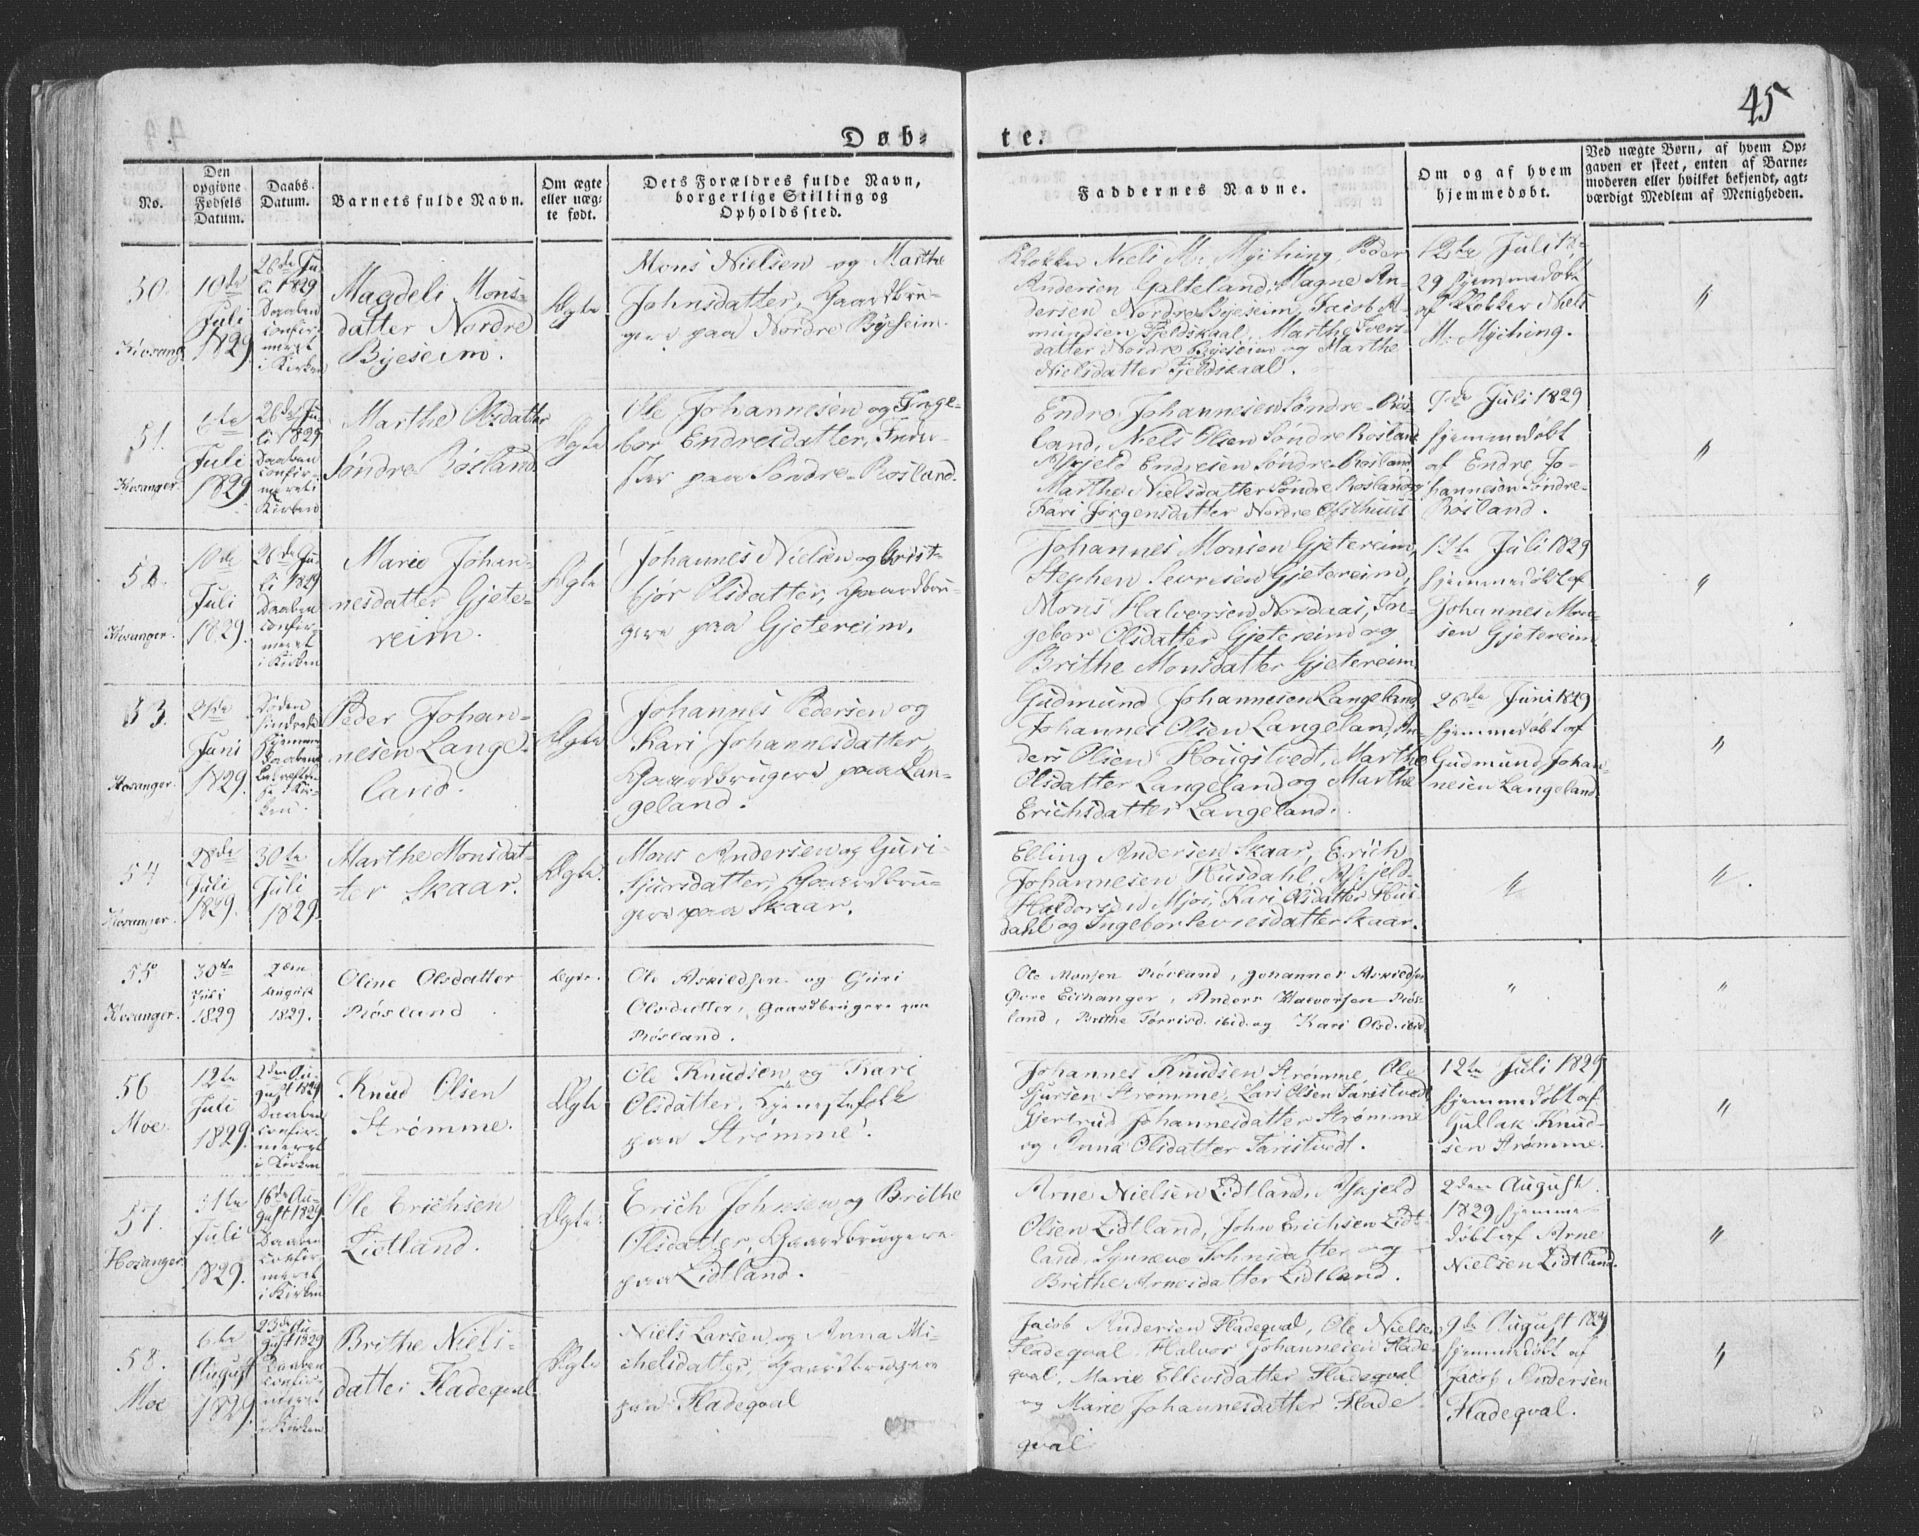 45
Døb-
te.
No.
Den
opgivne
Fødsels
Datum.
Daabs-
Datum.
Barnets fulde Navn.
Om ægte
eller uæg-
te født.
Dets Forældres fulde Navn,
borgerlige Stilling og
Opholdssted.
Faddernes Navne.
Om og af hvem
hjemmedøbt.
Ved uægte Børn, af hvem Op-
gaven er skeet, enten af Barne-
moderen eller hvilket bekjendt, agt-
værdigt Medlem af Menigheden.
50.
10de
Juli
1829.
26de Ju-
li 1829
Daaben
confir-
meret
i Kirken
Magdeli Mons-
datter Nordre
Byeseim.
Ægte
Mons Nielsen og Marthe
Johnsdatter, Gaardbru-
gere paa Nordre Byeseim.
Klokker Niels M. Myhing, Peder
Andersen Galteland, Magne An-
dersen Nordre Byeseim, Jacob A-
mundsen Fjeldskaal, Marthe Ivers-
datter Nordre Byeseim og Marthe
Nielsdatter Fjeldskaal.
12te Juli 18-
29 hjemmedøbt
af Klokker Niels
M. Myhing.
"
51.
Hosanger.
6te
Juli
1829
26de Ju-
li 1829
Daaben
confir-
meret i
Kirken
Marthe Olsdatter
Søndre Røsland
Ægte
Ole Johannesen og Inge-
bor Endresdatter, Inder-
ster paa Søndre Røsland.
Endre Johannesen Søndre Røs-
land, Niels Olsen Søndre Røsland
Askjeld Endresen Søndre Røsland,
Marthe Nielsdatter Søndre Røsland og
Kari Jørgensdatter Nordre Ofsthuus
7de Juli 1829
hjemmedøbt
af Endre Jo-
hannesen Søndre-
Røsland.
"
52.
Hosanger.
10de
Juli
1829.
26de Ju-
li 1829
Daaben
confir-
meret
i Kirken
Marie Johan-
nesdatter Gjete-
reim.
Ægte
Johannes Nielsen og Brist-
bjør Olsdatter, Gaardbru-
gere paa Gjetereim.
Johannes Monsen Gjetereim,
Stephen Sevrisen Gjetereim,
Mons Halvorsen Nordaas, In-
gebor Olsdatter Gjetereim og
Brithe Monsdatter Gjetereim
12te Juli 1829
hjemmedøbt af
Johannes Mon-
sen Gjetereim
"
53.
Hosanger.
Juni
1829.
Peder Johan-
nesen Lange-
land.
Ægte
Johannes Pedersen og
Kari Johannesdatter,
Gaardbrugere paa Lan-
geland.
Gudmund Johannesen Langeland
Johannes Olsen Langeland, An-
ders Olsen Hougstvedt, Marthe
Olsdatter Langeland og Marthe
Erichsdatter Langeland.
26de Juni 1829
hjemmedøbt af
Gudmund Johan-
nesen Langeland
"
54
Hosanger.
28de
Juli
1829.
30te
Juli
1829.
Marthe Monsdat-
ter Skaar.
Ægte.
Mons Andersen og Guri
Sjursdatter, Gaardbru-
gere paa Skaar.
Elling Andersen Skaar, Erich
Johannesen Husdahl, Askjeld
Haldorsen Mjøs, Kari Olsdatter Hus-
dahl og Ingebor Sevrisdatter Skaar.
"
".
55
Hosanger.
30te
Juli
1829
2den
August
1829.
Oline Olsdatter
Røsland
Ægte.
Ole Askildsen og Guri
Olsdatter, Gaardbrugere paa
Røsland.
Ole Monsen Røsland, Johannes Askildsen
Øvre Eichanger, Anders Halvorsen Røs-
land, Brithe Torrisd. ibid. og Kari Olsd. ibid.
"
"
56
Moe.
12te
Juli
1829.
2den Au-
gust 1829
Daaben
confir-
meret
i Kirken
Knud Olsen
Strømme.
Ægte
Ole Knudsen og Kari
Olsdatter, Tjenestefolk
paa Strømme.
Johannes Knudsen Strømme, Ole
Sjursen Strømme, Lars Olsen Farestvedt
Gjertrud Johannesdatter Strømme
og Anna Olsdatter Farestvedt.
12te Juli 1829
hjemmedøbt af
Gullak Knud-
sen Strømme.
"
57.
Hosanger
31te
Juli
1829.
16de Au-
gust 1829
Daaben
confir-
meret
i Kirken
Ole Erichsen
Lidtland.
Ægte.
Erich Johnsen og Brithe
Olsdatter, Gaardbrugere
paa Lidtland.
Arne Nielsen Lidtland, Askjeld
Olsen Lidtland, John Erichsen Lidt-
land, Synneve Johnsdatter og
Brithe Arnesdatter Lidtland.
2den August
1829 hjemme-
døbt af Arne
Nielsen Lidtland.
"
58.
Moe
6te
August
1829.
23de Au-
gust 1829
Daaben
confir-
meret
i Kirken
Brithe Niels-
datter Fladeqval
Ægte
Niels Larsen og Anna Mi-
chelsdatter, Gaardbrugere
paa Fladeqval
Jacob Andersen Fladeqval, Ole Nielsen
Fladeqval, Halvor Johannesen Flade-
qval, Marie Ellevsdatter Fladeqval
og Marie Johannesdatter Flade-
qval
9de August 1829
hjemmedøbt af
Jacob Andersen
Fladeqval.
"